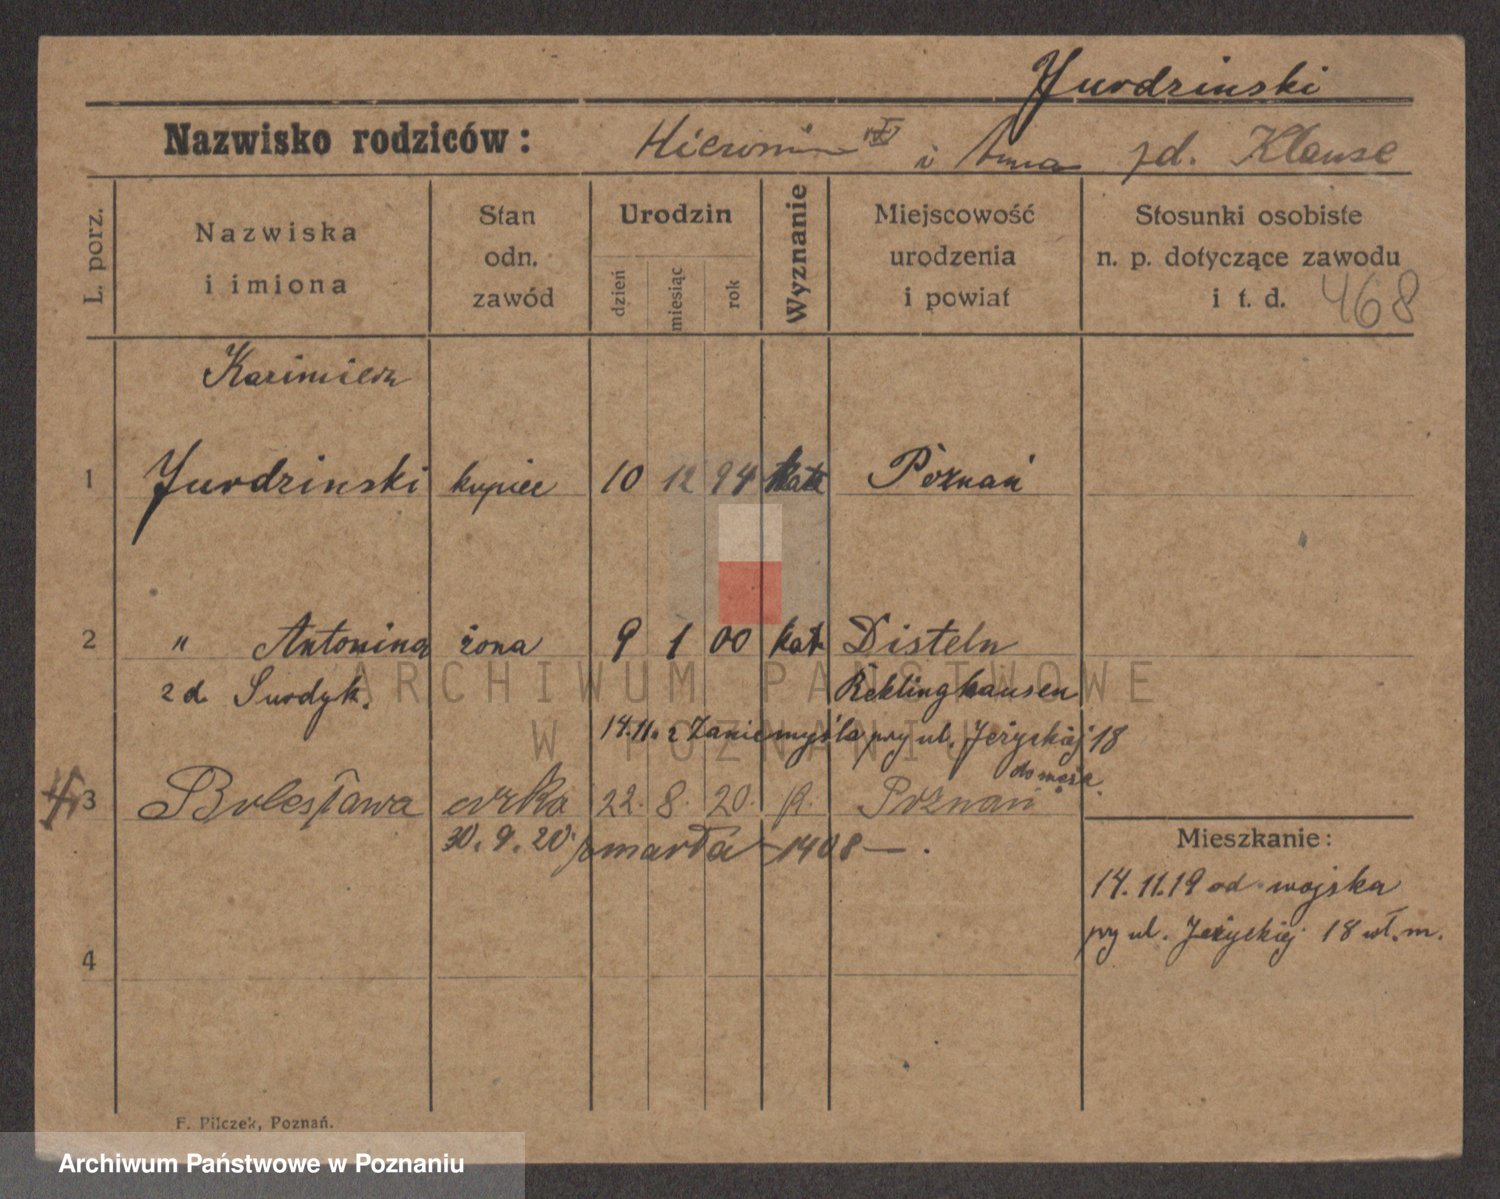 Jurdzinski
Nazwisko rodziców: Hieronim i Anna zd. Klause
L. porz.
Nazwiska
i imiona
Stan
odn.
zawód
Urodzin
dzień
miesiąc
rok
Wyznanie
Miejscowość
urodzenia
i powiat
Stosunki osobiste
n. p. dotyczące zawodu
i t. d. 468
Kazimierz
1 Jurdzinski kupiec 10 12 94 kat Poznań
2 " Antonina żona 9 1 00 kat Disteln
zd Surdyk. Reklinghausen
14.11. z Zaniemyśla przy ul. Jeżyckiej 18
do męża.
3 Bolesława córka 22. 8. 20. Poznań
30. 9. 20 zmarła – 1408 – .
Mieszkanie:
14.11.19 od wojska
przy ul. Jeżyckiej 18 wł. m.
4
F. Pilczek, Poznań.
ARCHIWUM PAŃSTWOWE
W POZNANIU
Archiwum Państwowe w Poznaniu